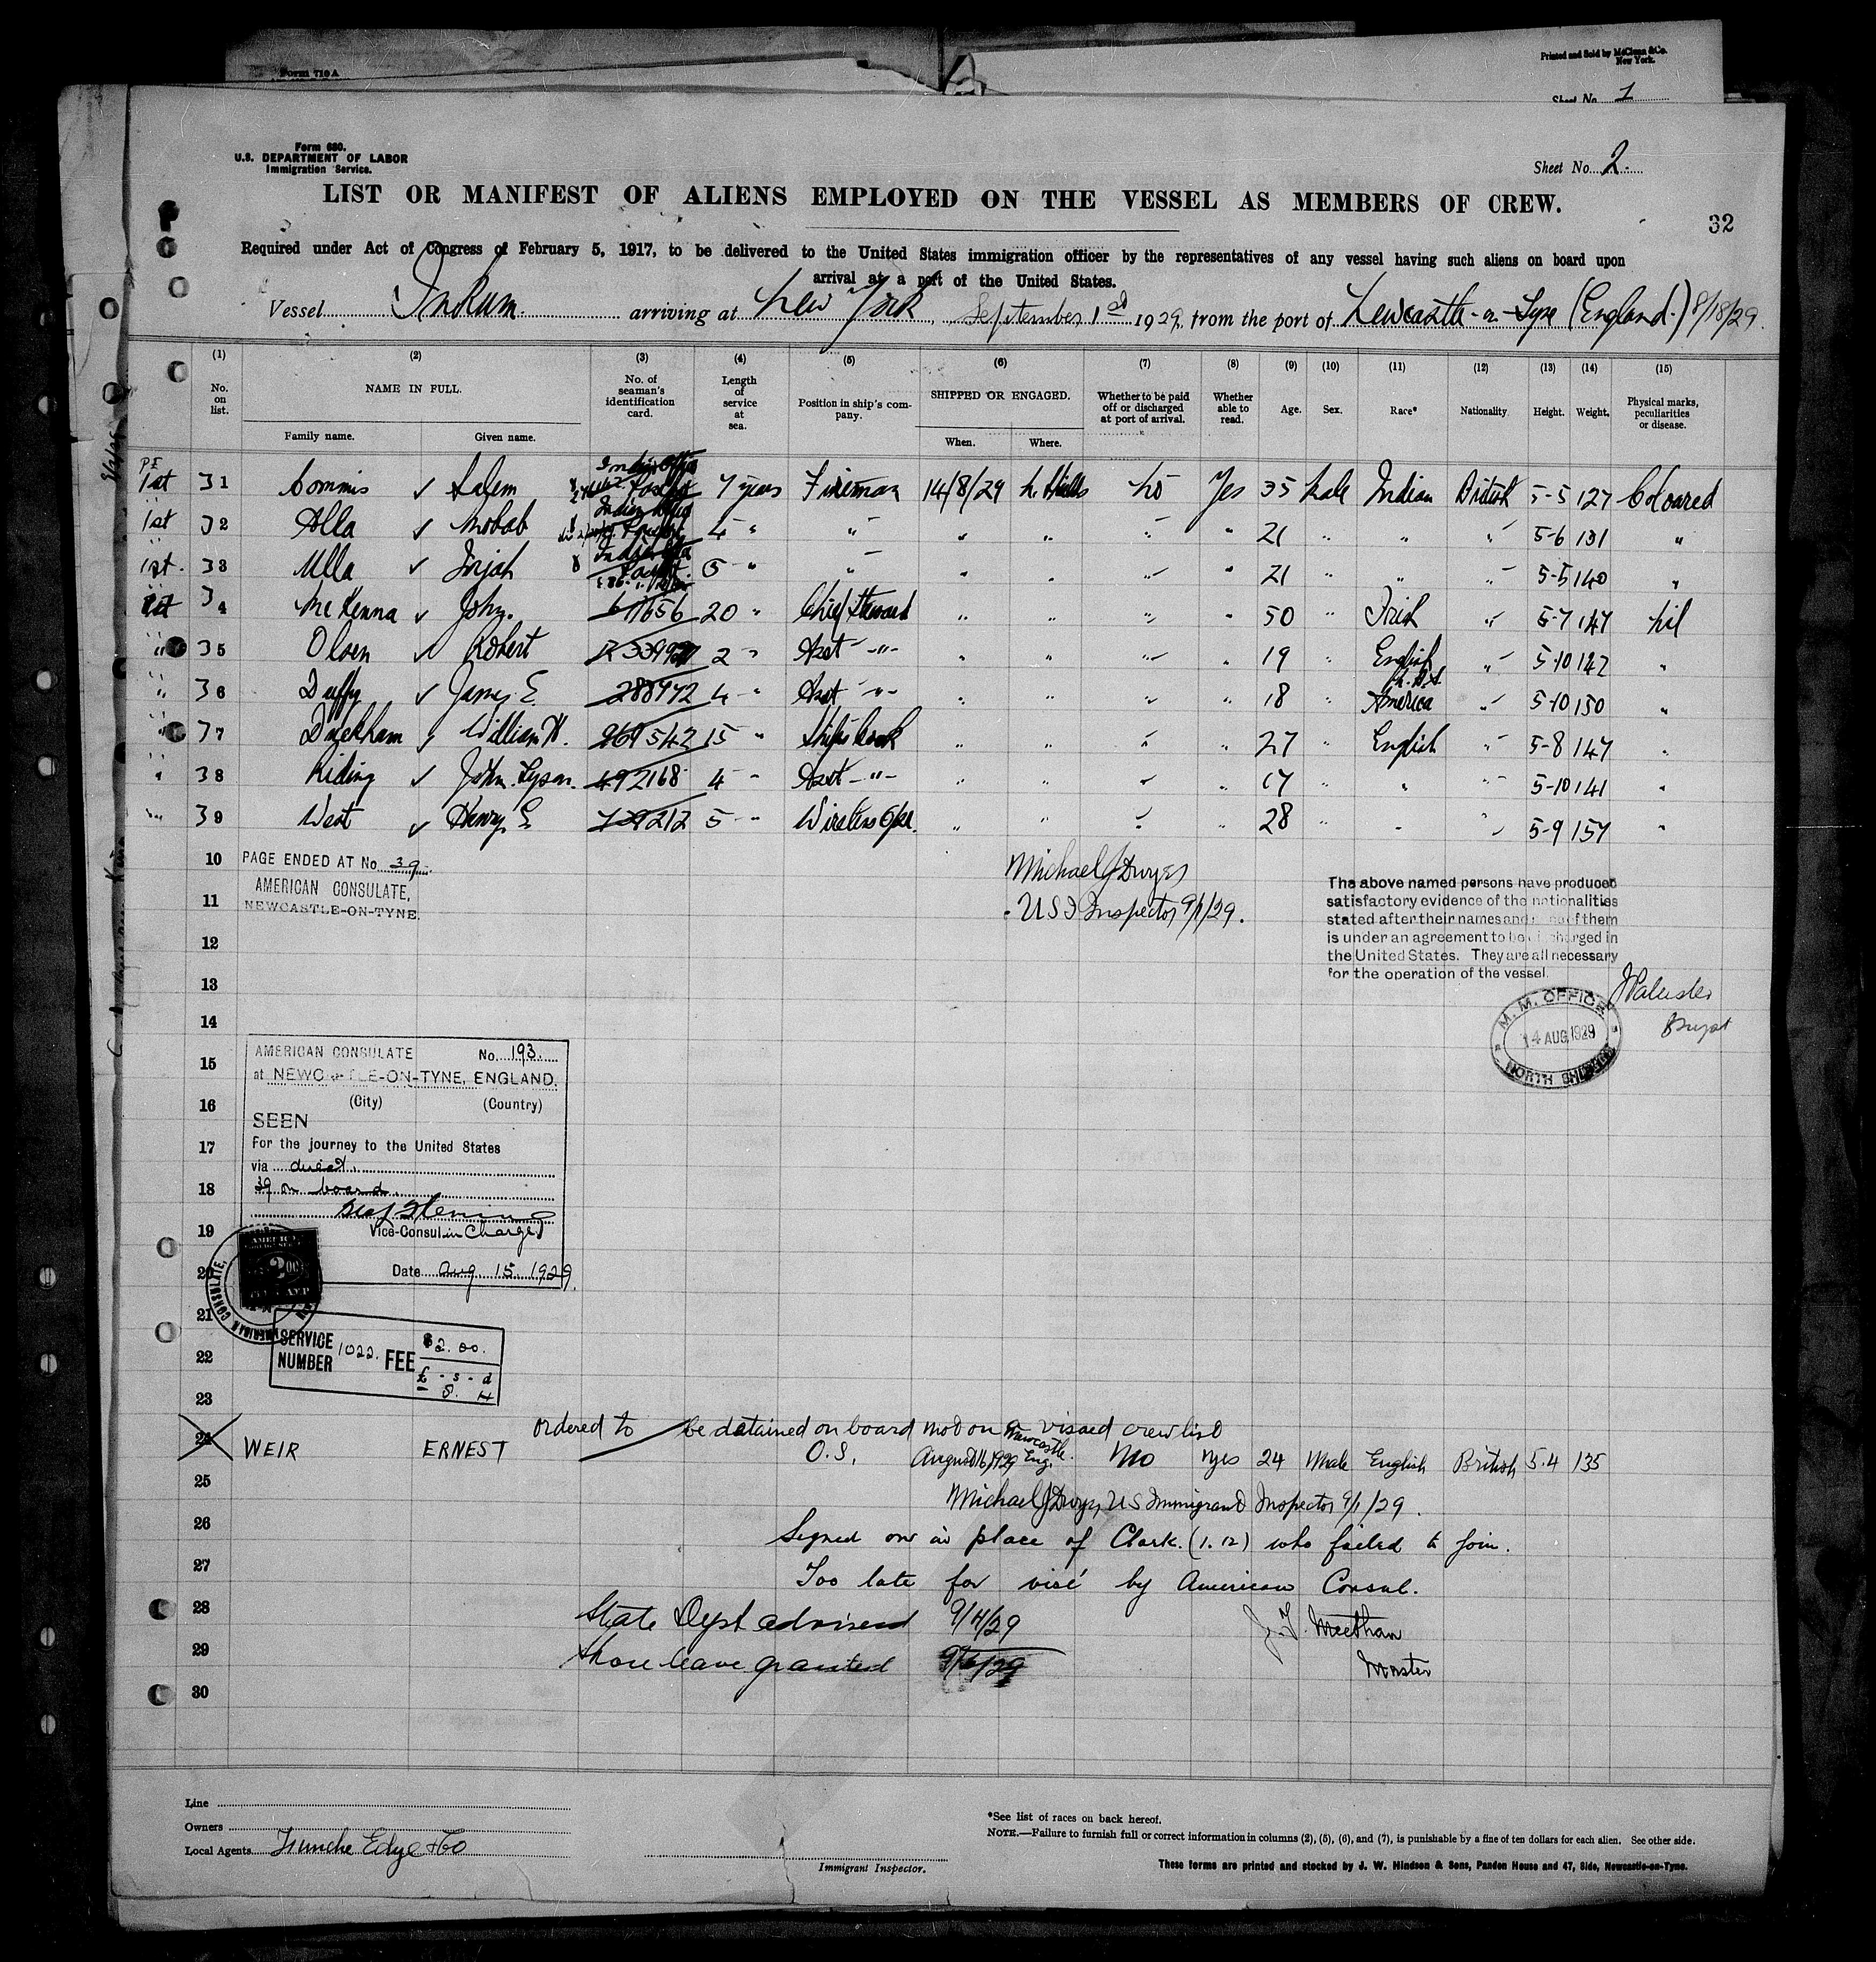 Form 710 A
Printed and Sold by McClean & Co.
New York.
Sheet No. 1
Form 680.
U.S. DEPARTMENT OF LABOR
Immigration Service.
Sheet No. 2.
LIST OR MANIFEST OF ALIENS EMPLOYED ON THE VESSEL AS MEMBERS OF CREW.
32
Required under Act of Congress of February 5, 1917, to be delivered to the United States immigration officer by the representatives of any vessel having such aliens on board upon
arrival at a port of the United States.
Vessel arriving at New York, September 1st 1929, from the port of Newcastle-on-Tyne (England.) 8/18/29.
(1) (2) (3) (4) (5) (6) (7) (8) (9) (10) (11) (12) (13) (14) (15)
No. on list. NAME IN FULL. Family name. Given name. No. of seaman's identification card. Length of service at sea. Position in ship's company. SHIPPED OR ENGAGED. When. Where. Whether to be paid off or discharged at port of arrival. Whether able to read. Age. Sex. Race* Nationality. Height. Weight. Physical marks, peculiarities or disease.
1st 31 Commis ✓ Salem 7 years Fireman 14/8/29 N Shields No Yes 35 Male Indian British 5-5 127 Coloured
1st 32 Alla ✓ Mobab 4 " " " " " " 21 " " " 5-6 131 "
1st. 33 Ulla ✓ 5 " " " " " " 21 " " " 5-5 140 "
1st 34 McKenna ✓ John. 61656 20 " Chief Steward " " " " 50 " Irish " 5-7 147 Nil
" 35 Olsen ✓ Robert 2 " Asst -"- " " " " 19 " English " 5-10 142 "
" 36 Duffy ✓ James E. 288972 4 " Asst -"- " " " " 18 " U.S.A. America " 5-10 150 "
" 37 Duckham ✓ William H. 269542 15 " Ship's Cook " " " " 27 " English " 5-8 147 "
" 38 Riding ✓ John Tyson. 492168 4 " Asst -"- " " " " 17 " " " 5-10 141 "
" 39 West ✓ Henry E. 5 " Wireless Oper. " " " " 28 " " " 5-9 157 "
10 PAGE ENDED AT No. 39
AMERICAN CONSULATE,
NEWCASTLE-ON-TYNE.
Michael J Dwyer
U S I Inspector 9/1/29.
The above named persons have produced
satisfactory evidence of the nationalities
stated after their names and of them
is under an agreement to be discharged in
the United States. They are all necessary
for the operation of the vessel.
M. M. OFFICE
14 AUG 1929
NORTH SHIELDS
11
12
13
14
15
16
17
18
19
20
21
22
23
AMERICAN CONSULATE No. 193.
at NEWCASTLE-ON-TYNE, ENGLAND.
(City) (Country)
SEEN
For the journey to the United States
via direct.
39 on board.
Vice-Consul in Charge
Date Aug 15. 1929.
AMERICAN CONSULATE,
SERVICE NUMBER 1022. FEE $2.00.
£ - s - d
- 8. 4
ordered to be detained on board not on visaed crew list
24 WEIR ERNEST O.S. August 16, 1929 Newcastle Eng. No yes 24 Male English British 5.4 135
25
Michael J Dwyer, U S Immigrant Inspector 9/1/29.
26
Signed on in place of Clark. (1.12) who failed to join.
27
Too late for visé by American Consul.
28 State Dept advised 9/4/29
J. F. Meethan
29 Shore leave granted 9/6/29
Master
30
Line
Owners
Local Agents Funche Edye & Co
Immigrant Inspector.
*See list of races on back hereof.
NOTE.—Failure to furnish full or correct information in columns (2), (5), (6), and (7), is punishable by a fine of ten dollars for each alien. See other side.
These forms are printed and stocked by J. W. Hindson & Sons, Pandon House and 47, Side, Newcastle-on-Tyne.